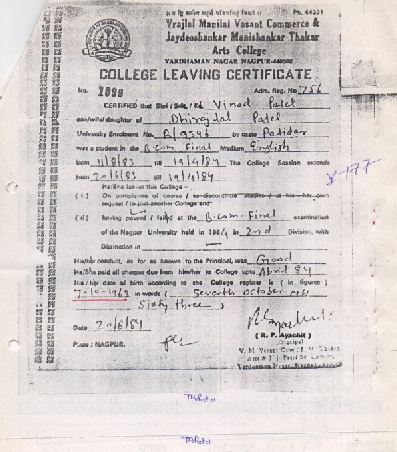 Ph. 44331
Vrajlal Manilal Vasant Commerce &
Jaydeoshankar Manishankar Thakar
Arts College
VARDHAMAN NAGAR NAGPUR-440008
COLLEGE LEAVING CERTIFICATE
No. Adm. Reg. No. 756
CERTIFIED that Shri / Smt. / Ku. Vinod Patel
son/wife/daughter of Dhirajlal Patel
University Enrolment No. B/9396 by caste Patidar
was a student in the B.com. Final Medium English
from 11/8/83 till 19/4/84 The College Session extends
from 20/6/83 till 19/4/84
He/She leaves this College—
(i) On completion of course / to discontinue studies / at his - her own
request / to join another College and
(ii) having passed / failed at the B.com. Final examination
of the Nagpur University held in 1984 in 2nd Division, with
Distinction in
His/her conduct, as far as known to the Principal, was Good
He/She paid all charges due from him/her to College upto April 84
His / her date of birth according to the College register is ( in figure )
7-10-1963 in words ( Seventh October
Sixty three )
Date 20/6/84
Place : NAGPUR.
( R. P. Ayachit )
Principal